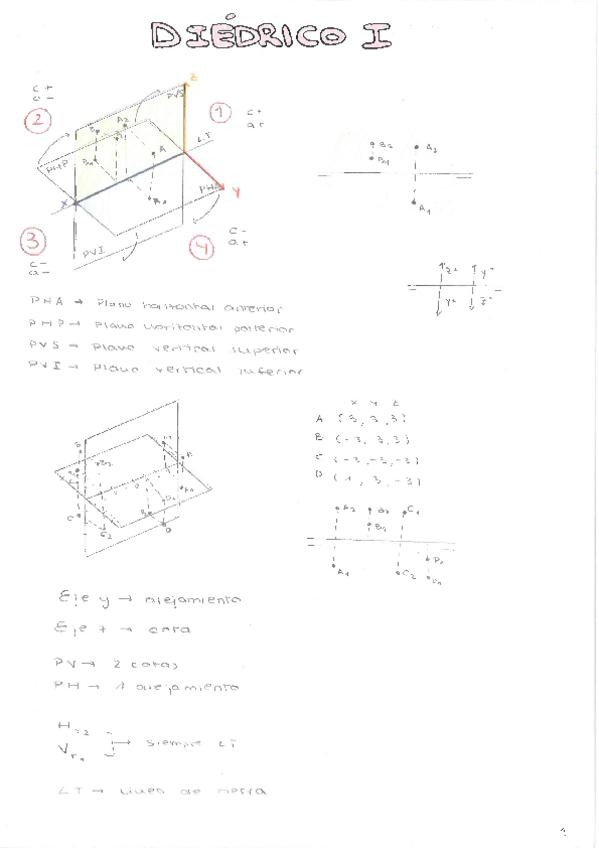 DIÉDRICO I
c+
a-
2
Z
PVS
1
c+
a+
A2
LT
PHP
A
PHA
Y
X
3
c-
a-
PVI
4
c-
a+
A2
A1
PHA → Plano horizontal anterior
PHP → Plano horizontal posterior
PVS → Plano vertical superior
PVI → Plano vertical inferior
X Y Z
A (3, 3, 3)
B (-3, 3, 3)
C (-3, -3, -3)
D (1, 3, -3)
A2
C1
A1
C2
Eje y → alejamiento
Eje z → cota
PV → 2 cotas
PH → 1 alejamiento
siempre LT
LT → Línea de tierra